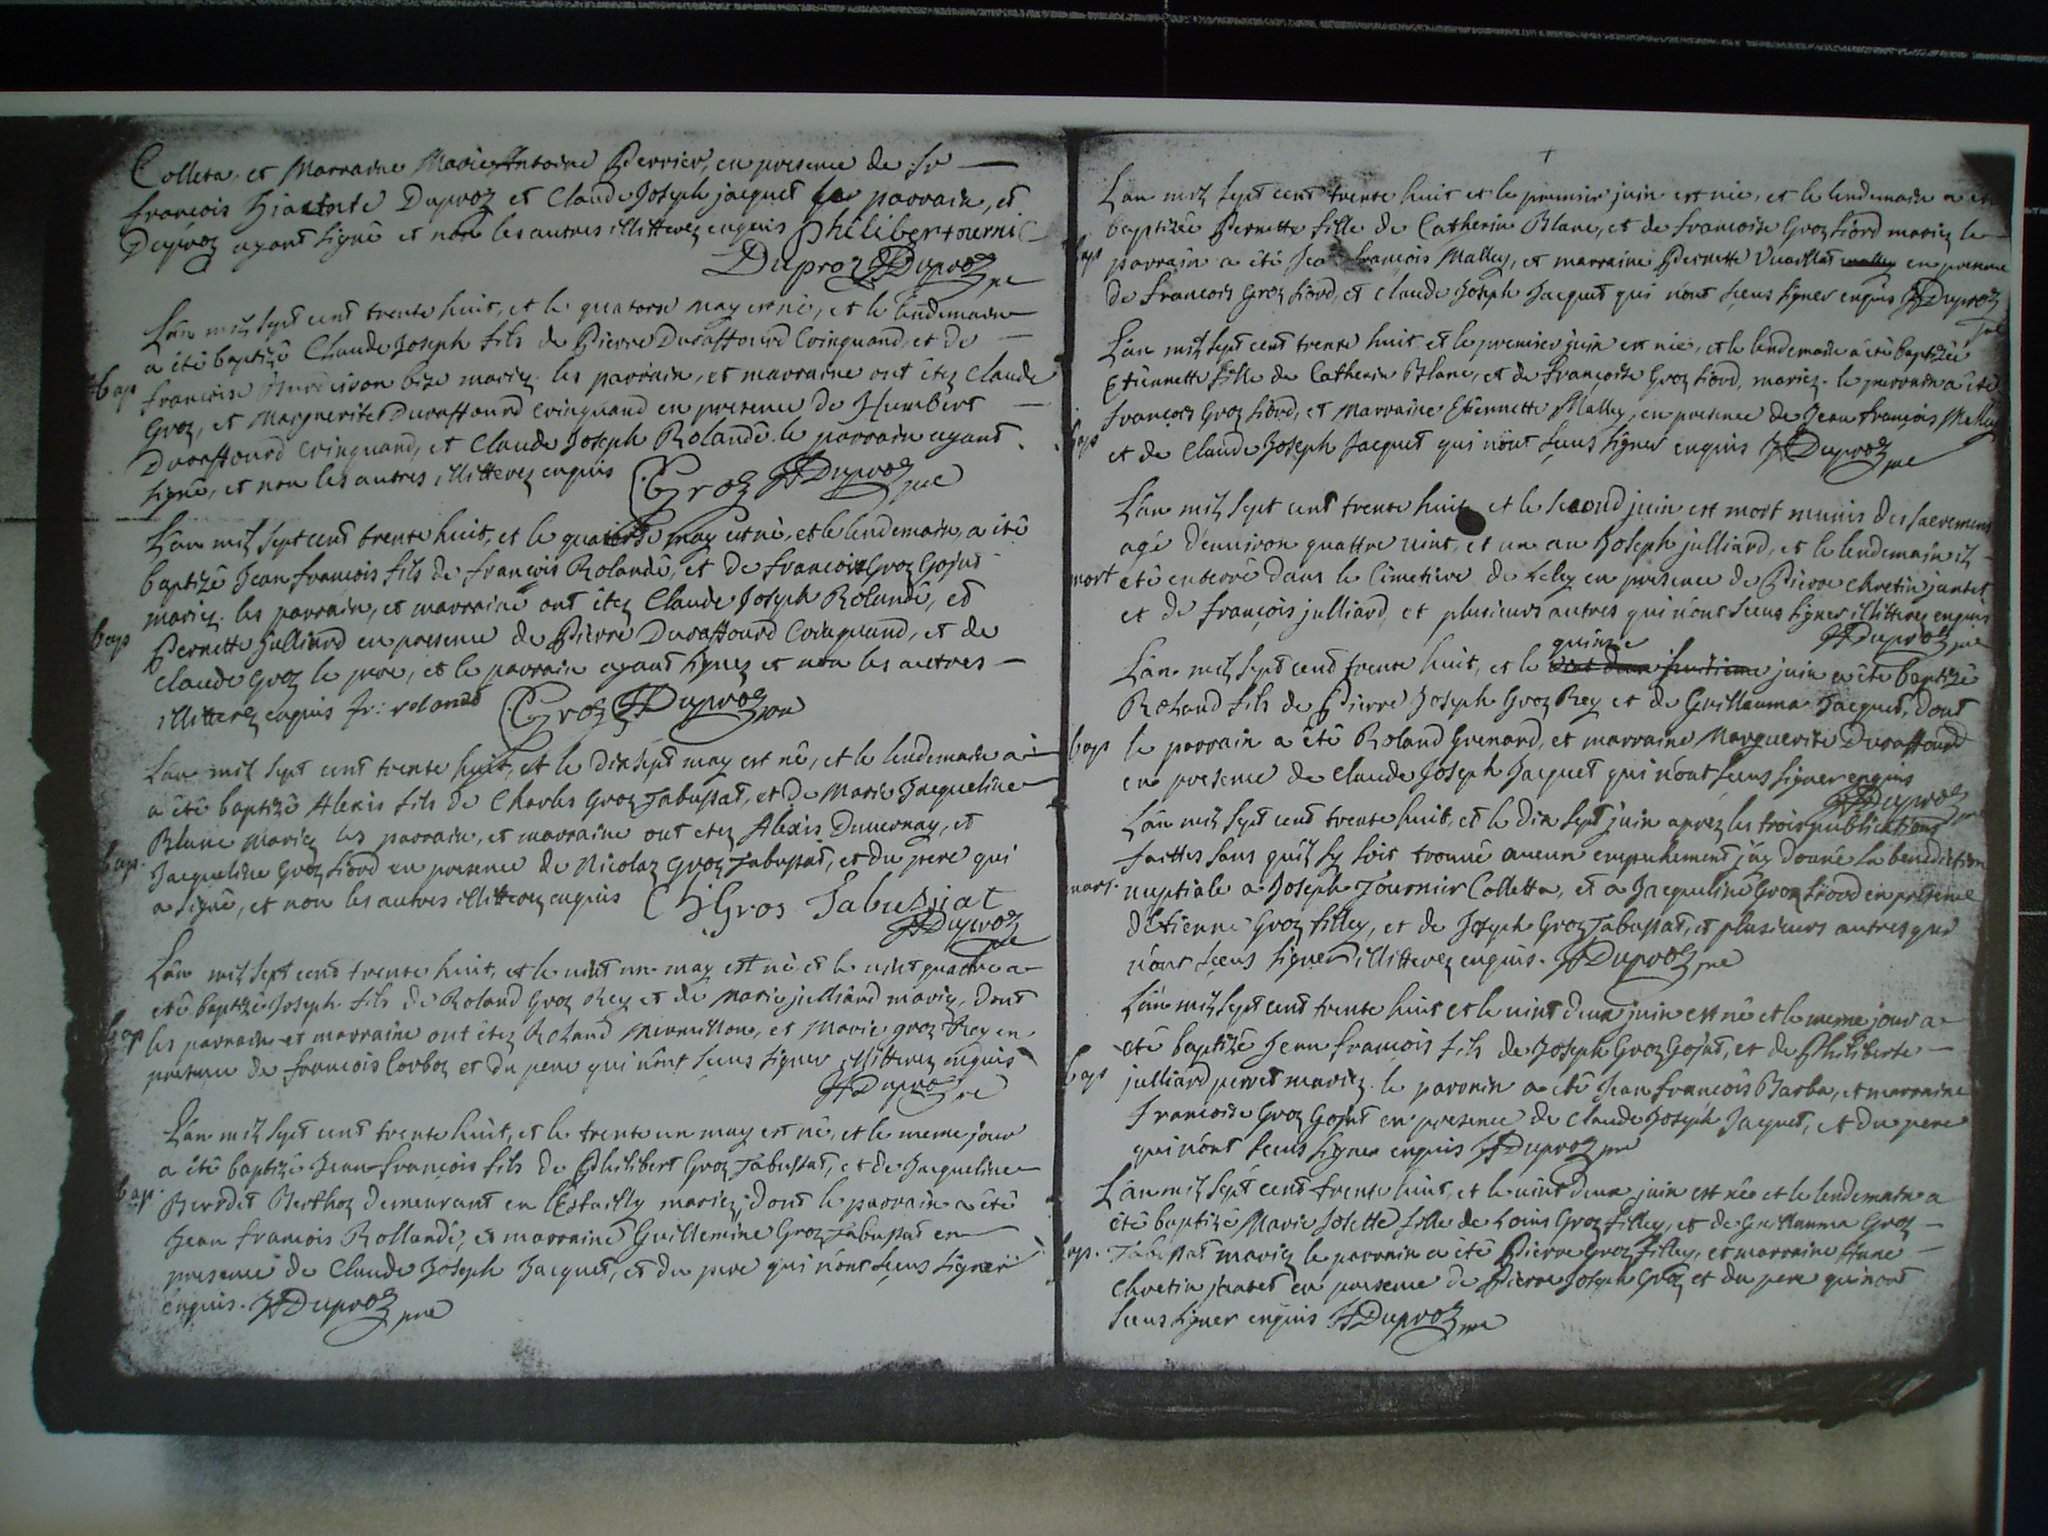 Colleta, et Marraine Marie Antoine Perrier, en presence de Sr
francois hiacinte Duproz et Claude Joseph jacquet le parrain, et
Duproz ayant signé et non les autres illitterez enquis philibertournie
Duproz JJDuproz pre
L'an mil sept cent trente huit, et le quatorse may est né, et le lendemain
a été baptizé Claude Joseph fils de Pierre Duraffourd Coinquand, et de
bap
francoise bize mariez. les parrain, et marraine ont étez Claude
Groz, et Marguerite Duraffourd Coinquand en presence de Humbert
Duraffourd Coinquand, et Claude Joseph Rolandé. le parrain ayant
signé, et non les autres illitterez enquis CGroz JJDuproz pre
L'an mil sept cent trente huit, et le quatorse may est né, et le lendemain, a été
baptizé Jean francois fils de francois Rolandé, et de francoise Groz Gojat
mariez. les parrain, et marraine ont étez Claude Joseph Rolandé, et
bap
Pernette Julliard en presence de Pierre Duraffourd Coinquand, et de
Claude Groz le pere, et le parrain ayant signez et non les autres
illitterez enquis fr: rolandé CGroz JJDuproz pre
L'an mil sept cent trente huit, et le dix sept may est né, et le lendemain a
a été baptizé Alexis fils de Charles Groz Tabussat, et de Marie Jacqueline
Blanc mariez les parrain, et marraine ont etez Alexis Duuernay, et
bap.
Jacqueline Groz fiord en presence de Nicolaz Groz Tabussat, et du pere qui
a signé, et non les autres illitterez enquis Ch Gros Tabussiat
JJDuproz pre
L'an mil sept cent trente huit, et le uint un may est né et le uint quattre a
eté baptizé Joseph fils de Roland Groz Rey et de Marie julliard mariez, dont
bap
les parrain et marraine ont étez Roland Mermillon, et Marie groz Rey en
presence de francois Corboz et du pere qui n'ont sceus signer illitterez enquis
JJDuproz pre
L'an mil sept cent trente huit, et le trente un may est né, et le meme jour
a été baptizé Jean francois fils de Philibert Groz Tabussat, et de Jacqueline
bap.
Berthoz demeurant en l'Estailly mariez, dont le parrain a été
Jean francois Rollandé, et marraine Guillemine Groz Tabussat en
presence de Claude Joseph Jacquet, et du pere qui n'ont sceus signer
enquis. JJDuproz pre
L'an mil sept cent trente huit et le premier juin est née, et le lendemain a été
baptizée Pernette fille de Catherin Blanc, et de francoise Groz fiord mariez le
bap
parrain a été Jean francois Malley, et marraine Pernette Vuaillat en presence
de francois Groz fiord, et Claude Joseph Jacquet qui n'ont sceus signer enquis JJDuproz
pre
L'an mil sept cent trente huit et le premier juin est née, et le lendemain a été baptizée
Etiennette fille de Catherin Blanc, et de francoise Groz fiord, mariez. le parrain a été
francois Groz fiord, et Marraine Etiennette Malley, en presence de Jean francois Malley
bap
et de Claude Joseph Jacquet qui n'ont sceus signer enquis JJDuproz pre
L'an mil sept cent trente huit et le second juin est mort munis des sacremens
agé d'enuiron quattre uint, et un an Joseph julliard, et le lendemain il
mort
eté enterré dans le Cimetiere de Leley en presence de Pierre Chretin jantet
et de francois julliard, et plusieurs autres qui n'ont sceus signer illitterez enquis
JJDuproz pre
quinse
L'an mil sept cent trente huit, et le juin a été baptizé
Roland fils de Pierre Joseph Groz Rey et de Guillauma Jacquet, dont
bap
le parrain a été Roland Grenard, et marraine Marguerite Duraffourd
en presence de Claude Joseph Jacquet qui n'ont sceus signer enquis
JJDuproz pre
L'an mil sept cent trente huit, et le dix sept juin aprez les trois publications
faittes sans qu'il sy soit trouué aucun empechement j'ay donné la benediction
mari.
nuptiale a Joseph Tournier Colletta, et a Jacqueline Groz fiord en presence
d'Etienne Groz filley, et de Joseph Groz Tabussat, et plusieurs autres qui
n'ont sceus signer illitterez enquis. JJDuproz pre
L'an mil sept cent trente huit et le uint deux juin est né et le meme jour a
eté baptizé Jean francois fils de Joseph Groz Gojat, et de Philiberte
bap
julliard perret mariez. le parrain a été Jean francois Barba, et marraine
francoise Groz Gojat en presence de Claude Joseph Jacquet, et du pere
qui n'ont sceus signer enquis JJDuproz pre
L'an mil sept cent trente huit, et le uint deux juin est née et le lendemain a
été baptizé Marie Josette fille de Louis Groz filley, et de Guillauma Groz
bap.
Tabussat mariez le parrain a été Pierre Groz filley, et marraine Anne
Chretin jantet en presence de Pierre Joseph Groz et du pere qui n'ont
sceus signer enquis JJDuproz pre